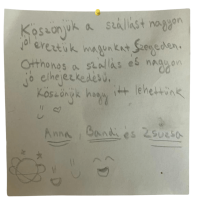 Köszönjük a szállást nagyon
jól éreztük magunkat Szegeden.
Otthonos a szállás és nagyon
jó elhelyezkedésű,
Köszönjük hogy itt lehettünk
Anna, Bandi és Zsuzsa